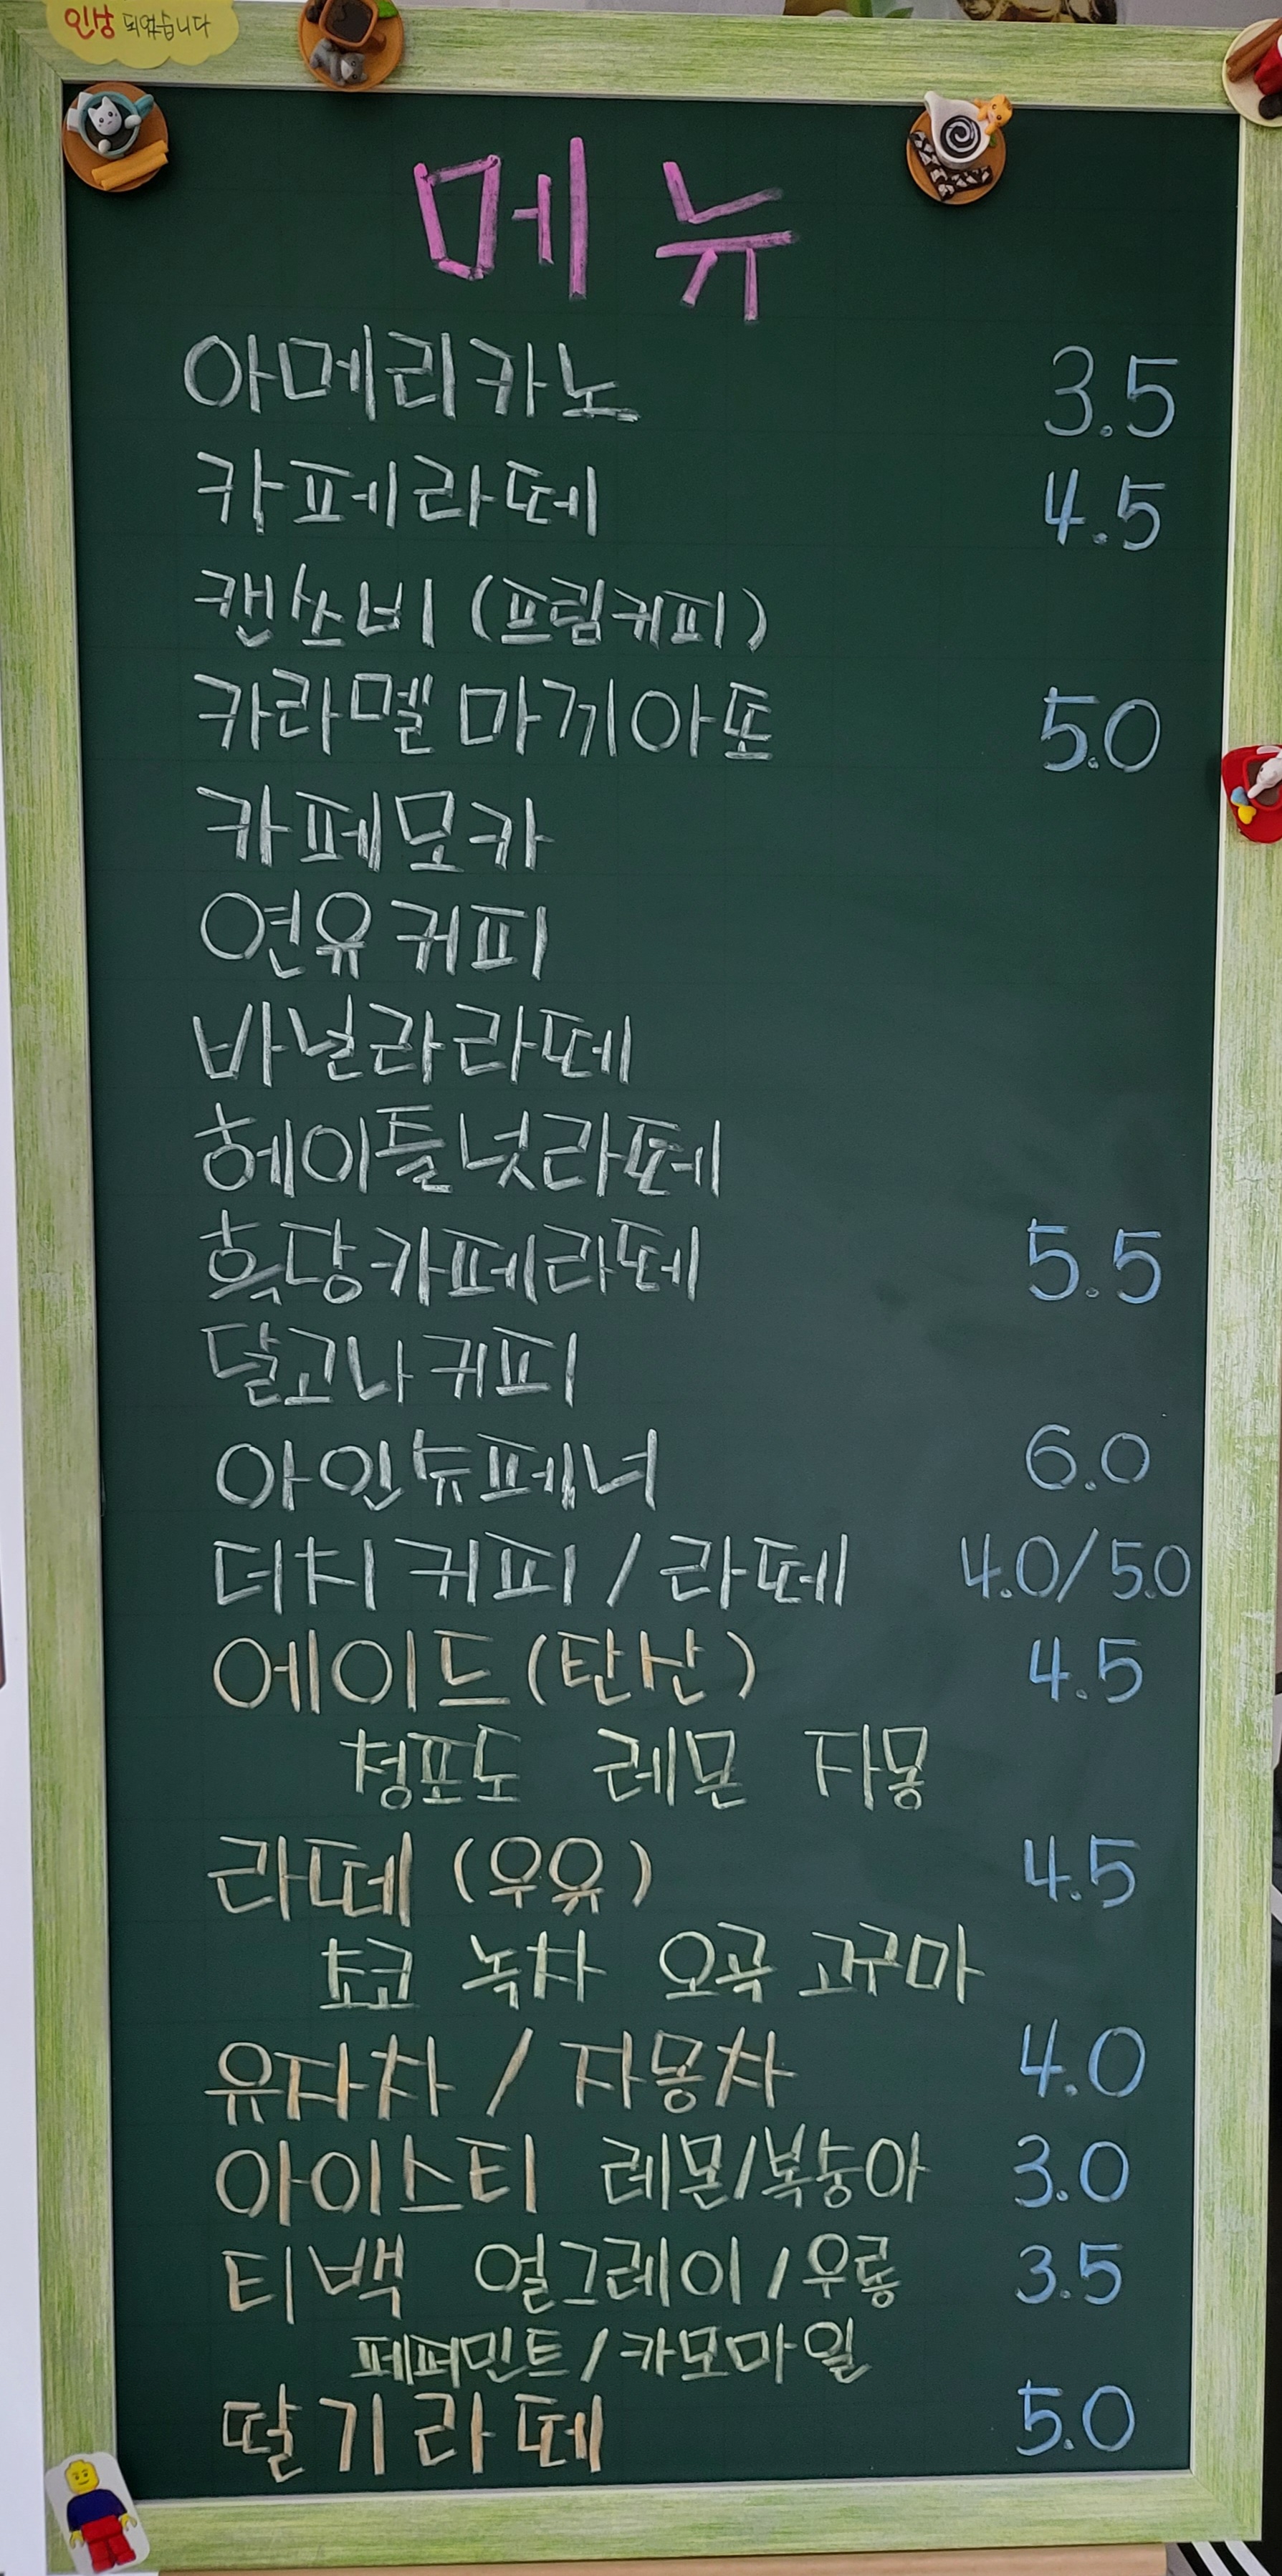 인상 되었습니다
메뉴
아메리카노 3.5
카페라떼 4.5
캔쏘비 (프림커피)
카라멜 마끼아또 5.0
카페모카
연유커피
바닐라라떼
헤이틀넛라떼
흑당카페라떼 5.5
달고나커피
아인슈페너 6.0
더치커피 / 라떼 4.0/5.0
에이드 (탄산) 4.5
청포도 레몬 자몽
라떼 (우유) 4.5
쵸코 녹차 오곡 고구마
유자차 / 자몽차 4.0
아이스티 레몬/복숭아 3.0
티백 얼그레이/우롱 3.5
페퍼민트/카모마일
딸기라떼 5.0